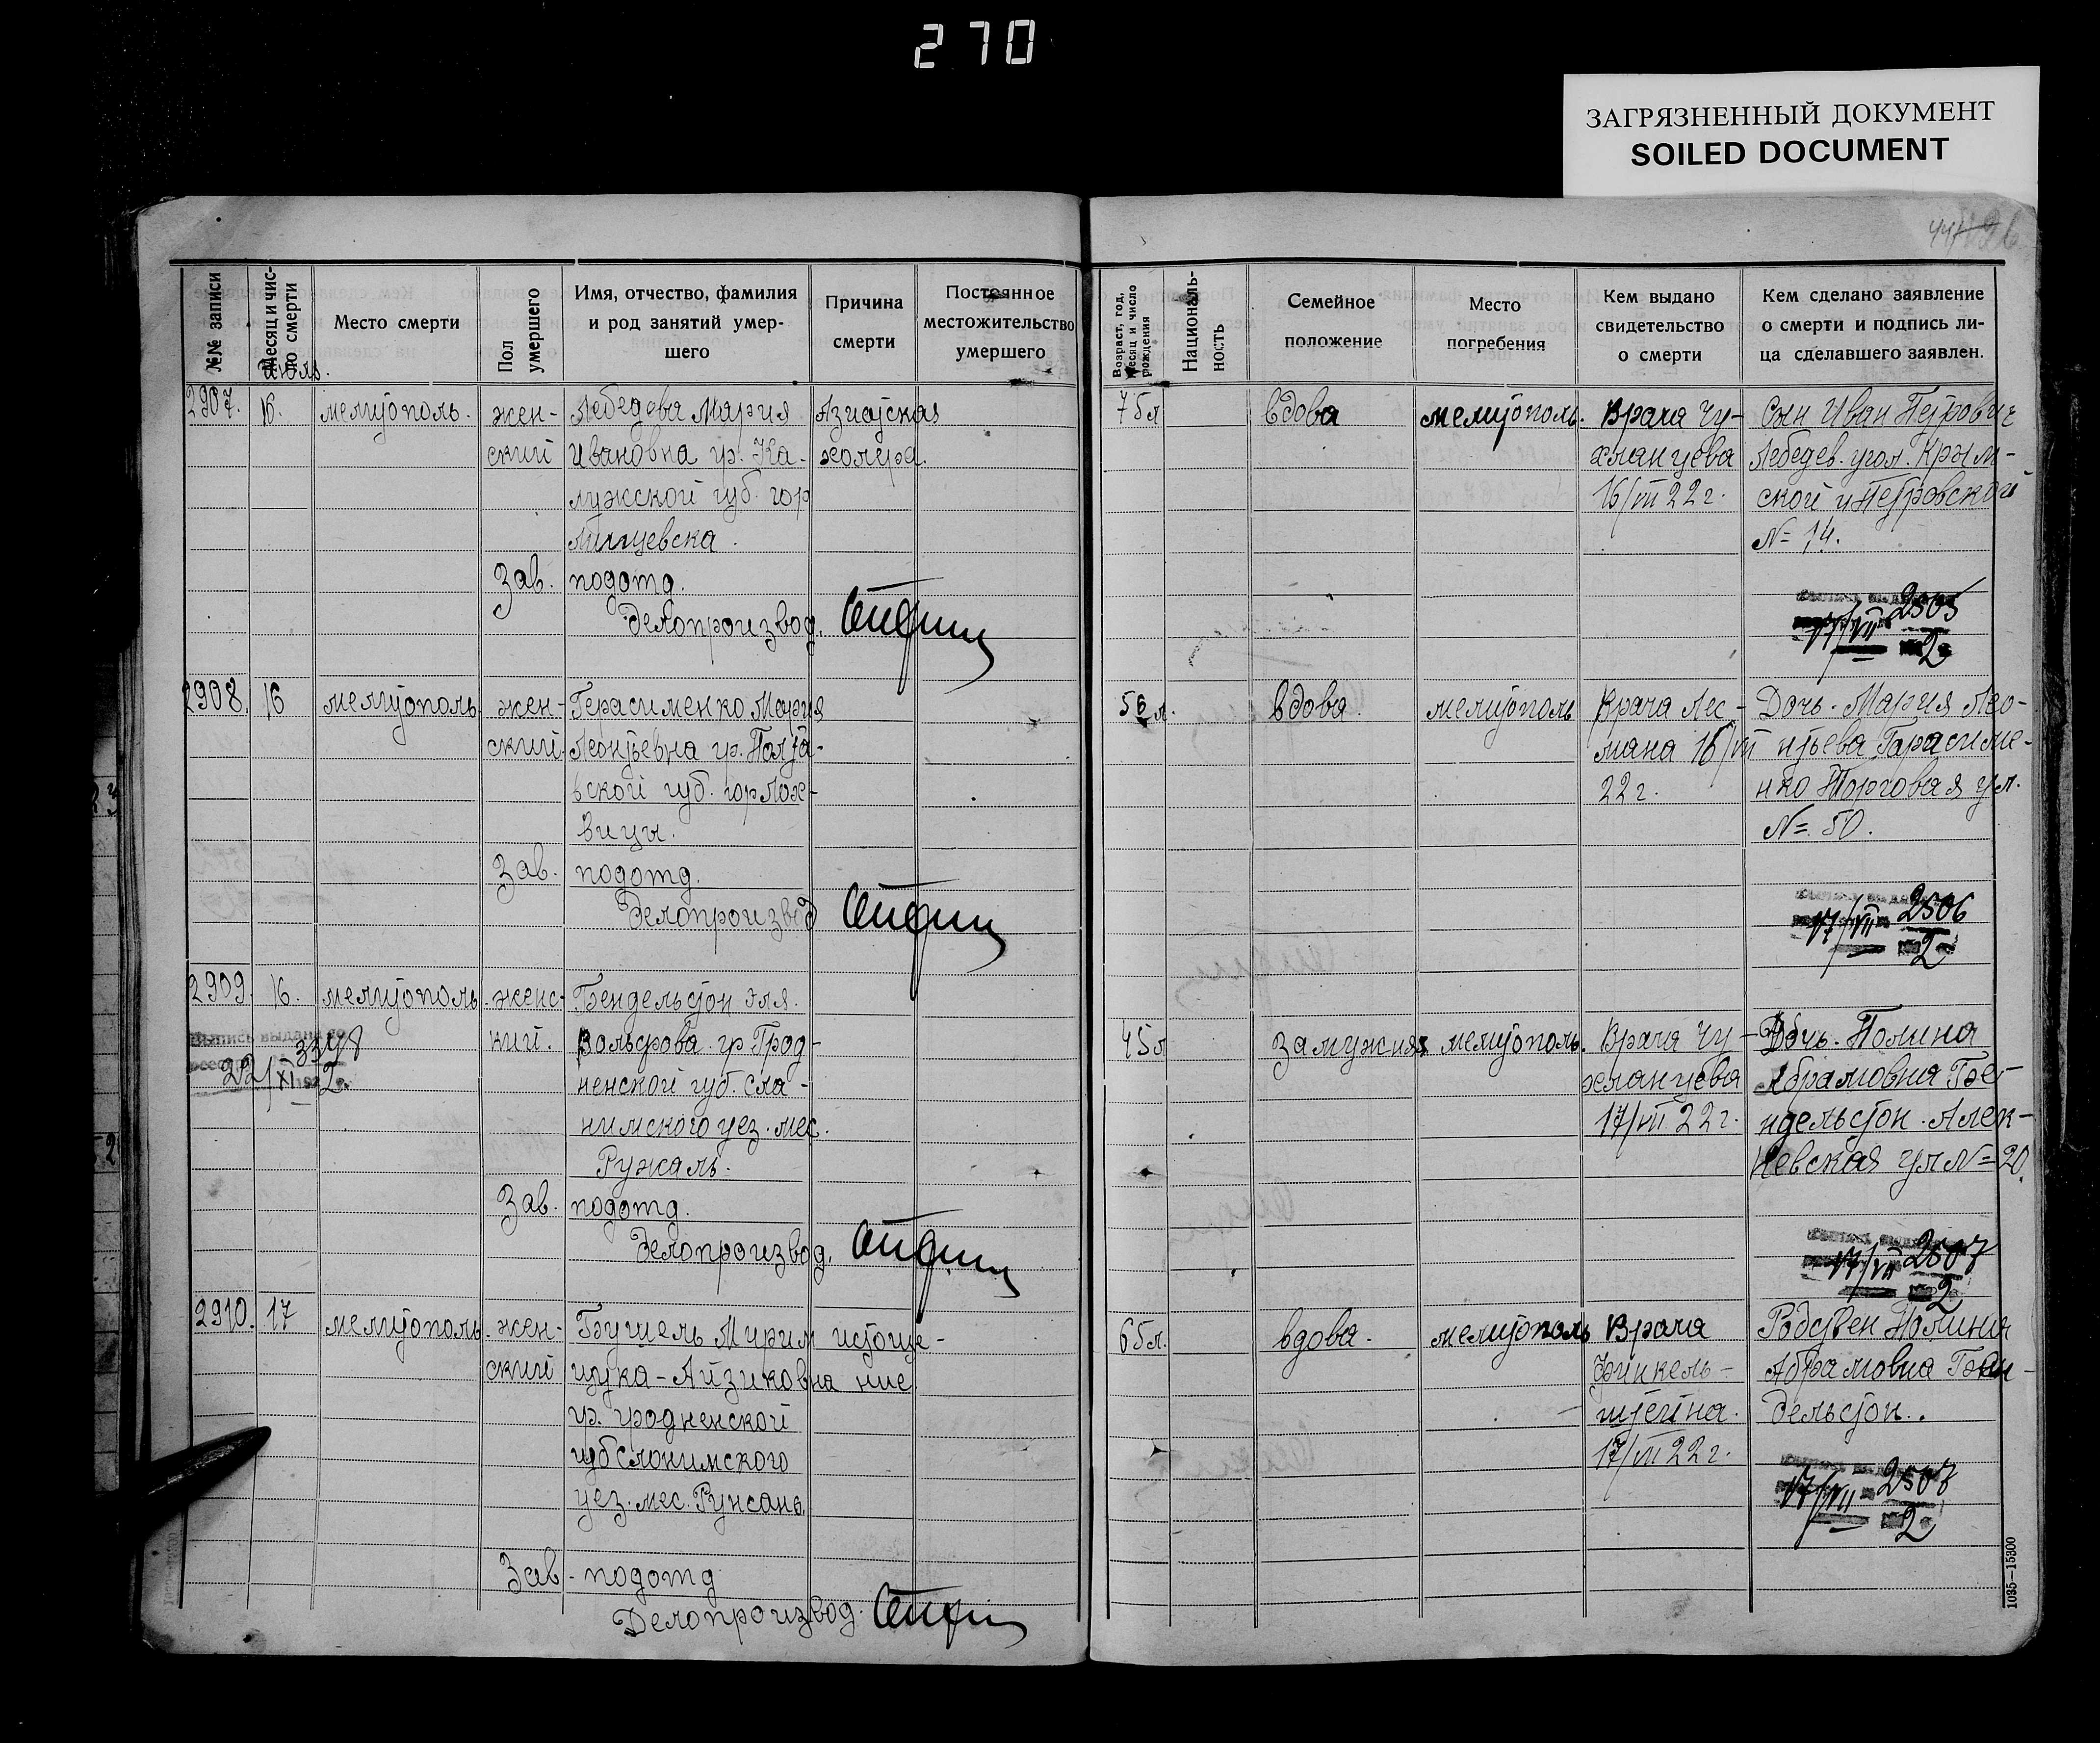 270
ЗАГРЯЗНЕННЫЙ ДОКУМЕНТ
SOILED DOCUMENT
№№ записи
Месяц и чис-
ло смерти
Место смерти
Пол
умершего
Имя, отчество, фамилия
и род занятий умер-
шего
Причина
смерти
Постоянное
местожительство
умершего
Возраст, год,
месяц и число
рождения
Националь-
ность
Семейное
положение
Место
погребения
Кем выдано
свидетельство
о смерти
Кем сделано заявление
о смерти и подпись ли-
ца сделавшего заявлен.
июль.
2907.
16.
мелитополь.
жен-
ский
Лебедева Мария
Ивановна гр. Ка-
лужской губ. гор
Азиатская
холера.
75л
вдова
мелитополь.
Врача Чу-
хланцева
16/VII 22 г.
Сын Иван Петрович
Лебедев. угол. Крым-
ской и Петровской
№ 14.
Зав. подотд.
Делопроизвод.
17/VII 2505
2
2908.
16
мелитополь
жен-
ский.
Герасименко Мария
Леонтьевна гр. Полта-
вской губ. гор Лох-
вицы.
56 л.
вдова.
мелитополь
Врача Лес-
мана 16/VII
22 г.
Дочь. Мария Лео-
нтьева Гарасиме-
нко Торговая ул.
№ 50.
Зав. подотд.
Делопроизвод
17/VII 2506
2
2909.
16.
мелитополь.
женс-
кий.
Бендельстон Эля.
Вольфова. гр Грод-
ненской губ. Сла-
нимского уез. мес.
Ружаль.
Выпись выдана по
3398
22/XI 192 2 г.
45л
замужняя
мелитополь.
Врача Чу-
хланцева
17/VII 22 г.
Дочь. Полина
Абрамовна Бе-
ндельстон. Алек-
Невская ул № 20.
Зав. подотд.
Делопроизвод.
17/VII 2507
2
2910.
17
мелитополь.
жен-
ский
Бушель Мирим
цука-Айзиковна
гр. гродненской
губ слонимского
уез. мес. Ружань.
истоще-
ние
65л.
вдова.
мелитополь
Врача
Финкель-
штейна.
17/VII 22 г.
Родствен Полина
Абрамовна Бен-
дельстон.
Зав. подотд
Делопроизвод.
17/VII 2507
2
1035—15300